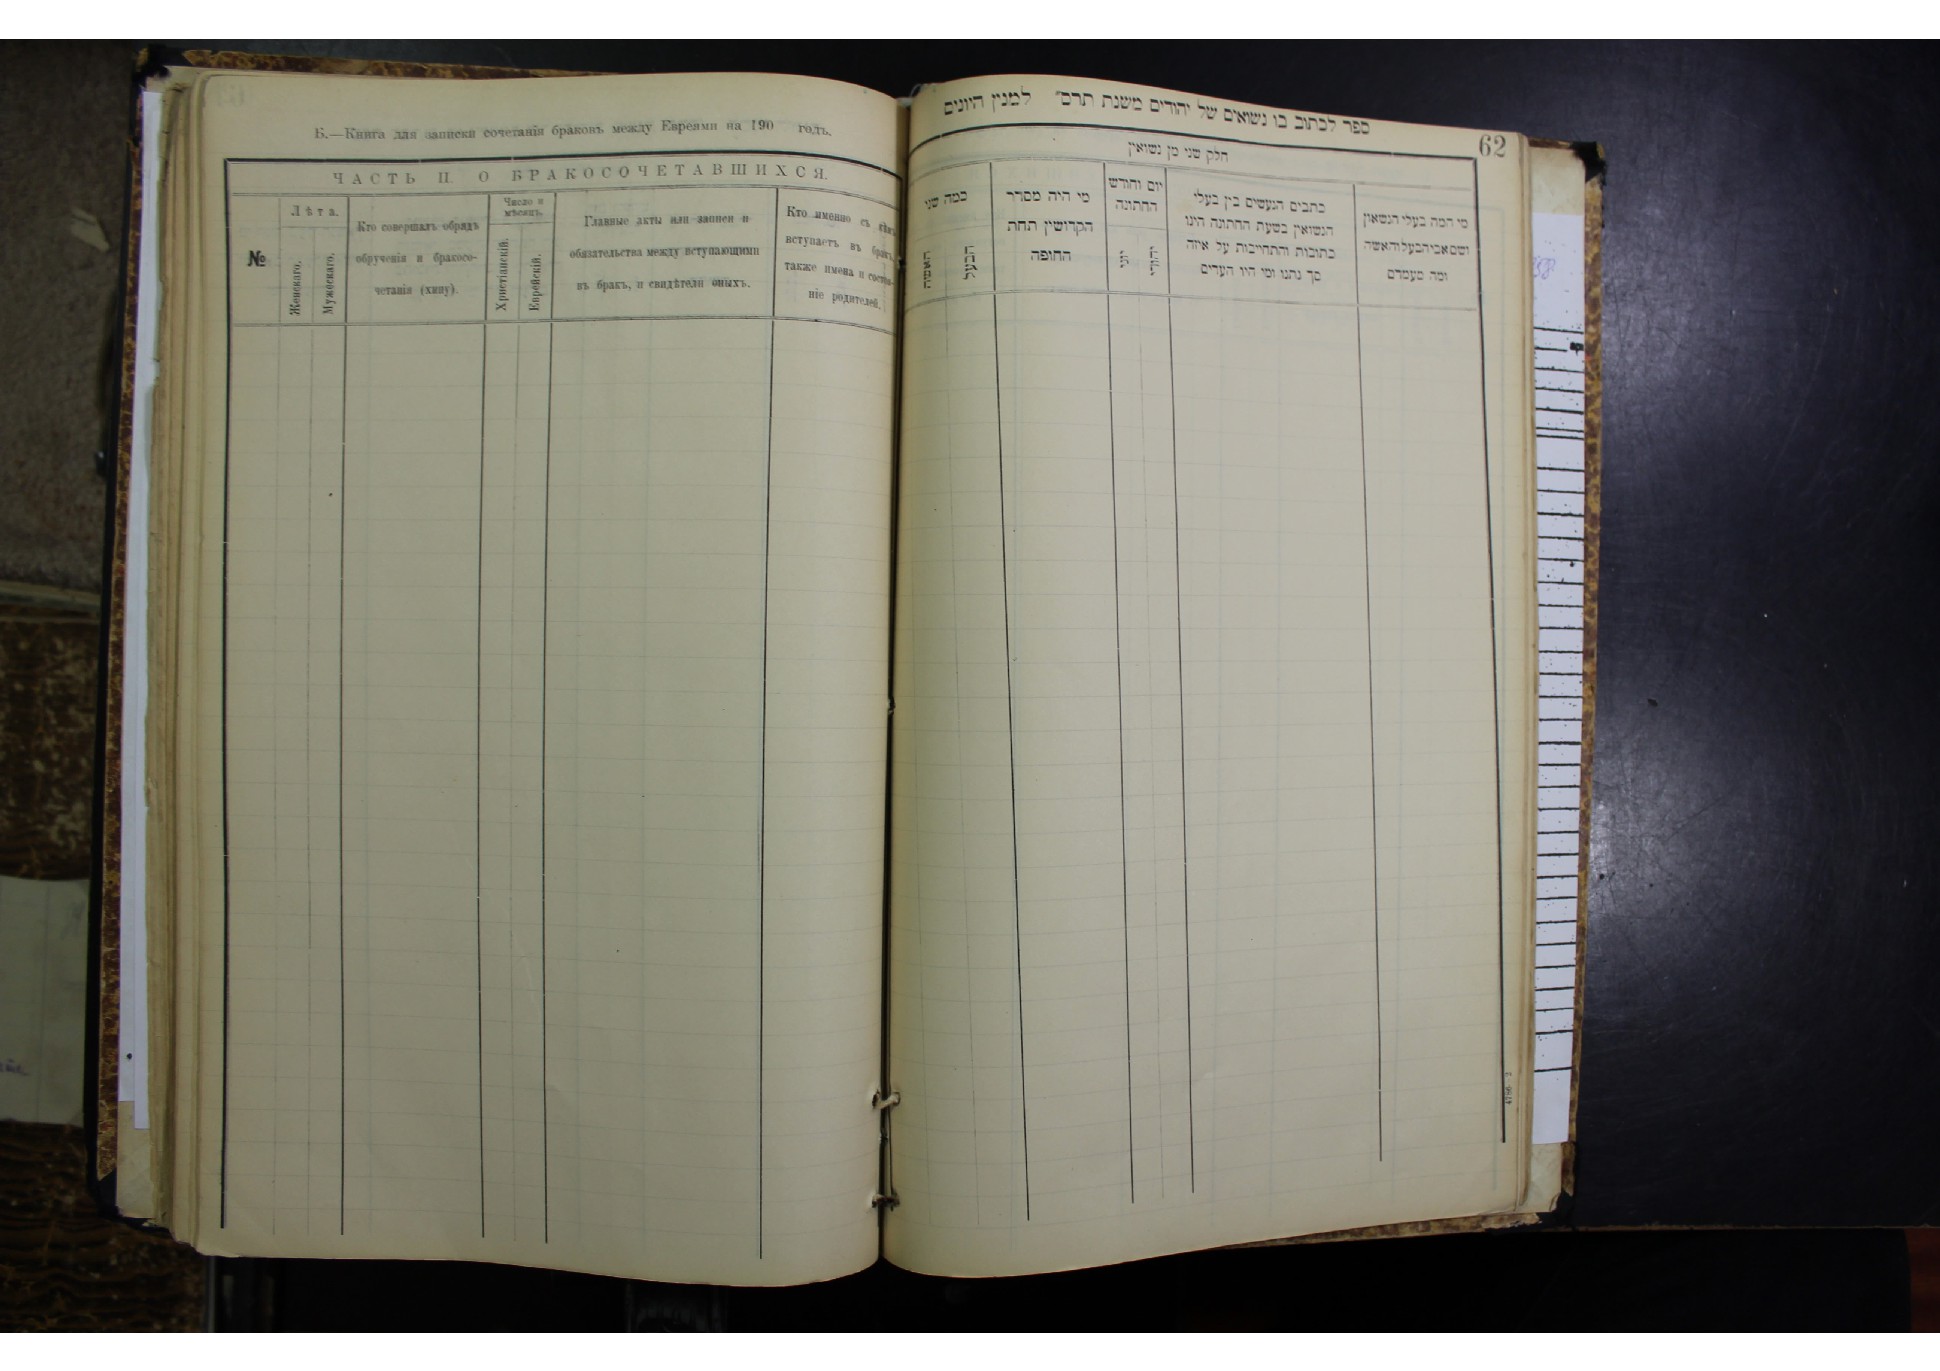 Б.—Книга для записки сочетанія браковъ между Евреями на 190 годъ.
ЧАСТЬ II. О БРАКОСОЧЕТАВШИХСЯ.
№
Лѣта.
Женскаго.
Мужескаго.
Кто совершалъ обрядъ
обрученія и бракосо-
четанія (хупу).
Число и
мѣсяцъ.
Христіанскій.
Еврейскій.
Главные акты или записи и
обязательства между вступающими
въ бракъ, и свидѣтели оныхъ.
Кто именно съ кѣмъ
вступаетъ въ бракъ,
также имена и состоя-
ніе родителей.
ספר לכתוב בו נשואים של יהודים משנת תרס״ למנין היונים
62
חלק שני מן נשואין
כמה שני
האשה
הבעל
מי היה מסדר
הקדושין תחת
החופה
יום וחודש
החתונה
יוני
יהודי
כתבים הנעשים בין בעלי
הנשואין בשעת החתונה היינו
כתובות והתחייבות על איזה
סך נתנו ומי היו העדים
מי המה בעלי הנשואין
ושם אבי הבעל והאשה
ומה מעמדם
4786—2